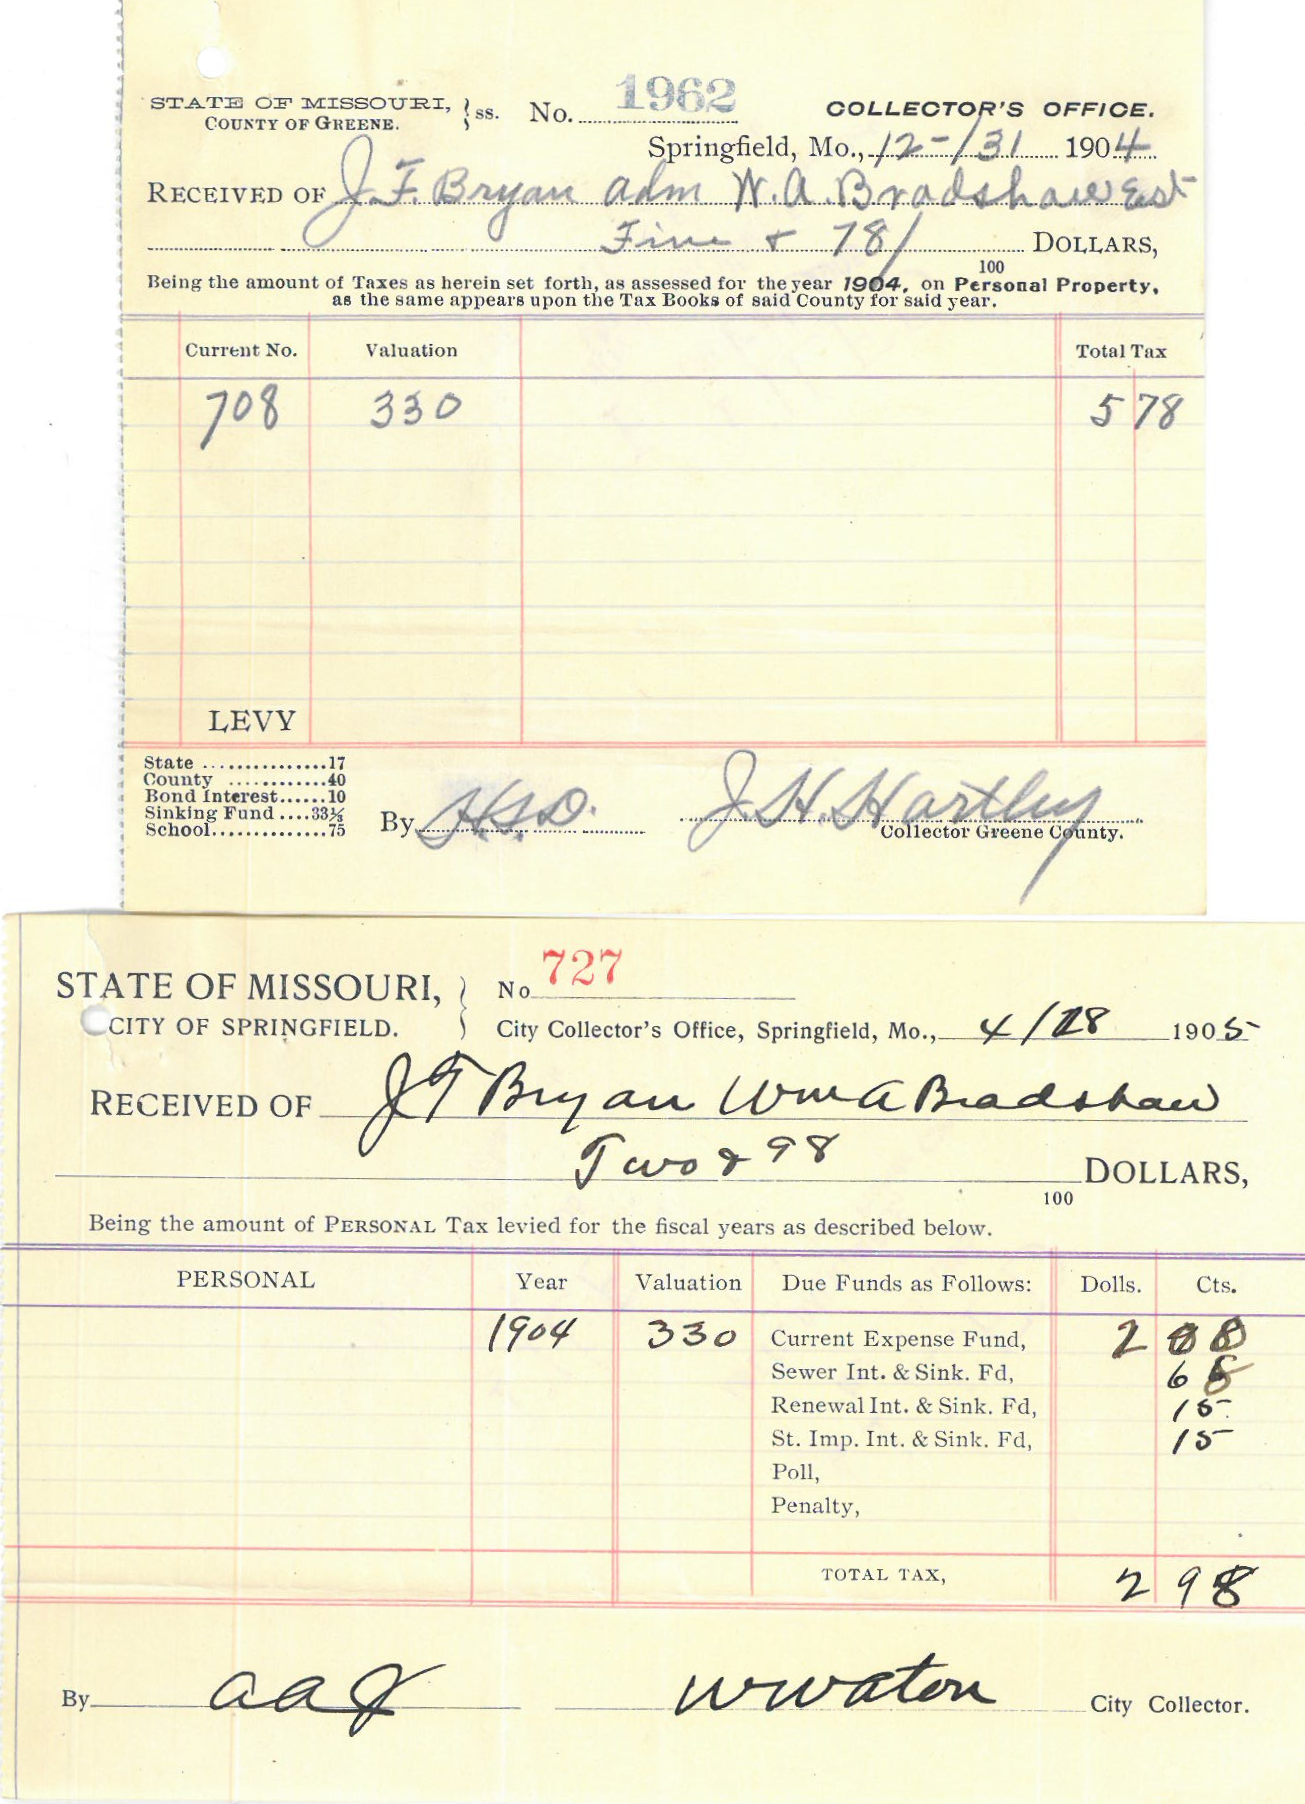 STATE OF MISSOURI, } ss. No. 1962 COLLECTOR'S OFFICE.
COUNTY OF GREENE.
Springfield, Mo., 12-/31 1904
RECEIVED OF J. F. Bryan adm W. A. Bradshaw Est
Five & 78/100 DOLLARS,
Being the amount of Taxes as herein set forth, as assessed for the year 1904, on Personal Property,
as the same appears upon the Tax Books of said County for said year.
Current No. Valuation Total Tax
708 330 5 78
LEVY
State ...............17
County ............40
Bond Interest......10
Sinking Fund ....33⅓
School..............75
By J. H. Hartley
Collector Greene County.
STATE OF MISSOURI, } No 727
CITY OF SPRINGFIELD. City Collector's Office, Springfield, Mo., 4/28 1905
RECEIVED OF J F Bryan Wm A Bradshaw
Two & 98 DOLLARS,
100
Being the amount of PERSONAL Tax levied for the fiscal years as described below.
PERSONAL Year Valuation Due Funds as Follows: Dolls. Cts.
1904 330 Current Expense Fund, 2
Sewer Int. & Sink. Fd, 6
Renewal Int. & Sink. Fd, 15
St. Imp. Int. & Sink. Fd, 15
Poll,
Penalty,
TOTAL TAX, 2 98
By City Collector.